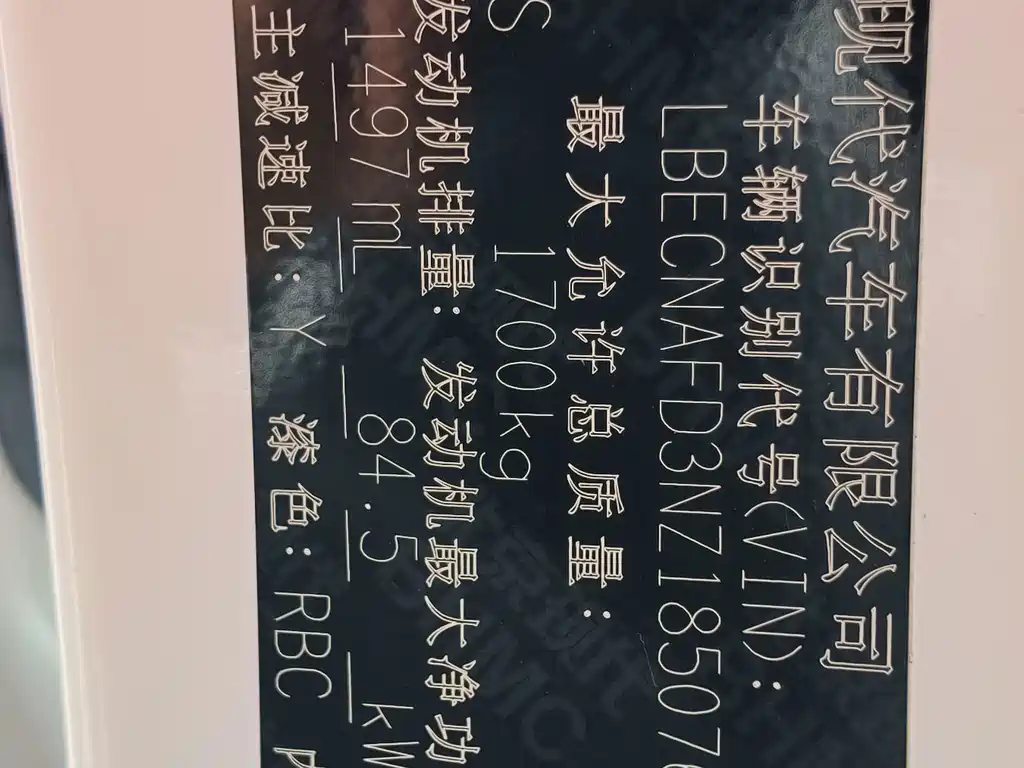 现代汽车有限公司
车辆识别代号(VIN):
LBECNAFD3NZ18507
最大允许总质量:
S 1700kg
发动机排量: 发动机最大净功
1497mL 84.5 kW
主减速比:Y 漆色:RBC